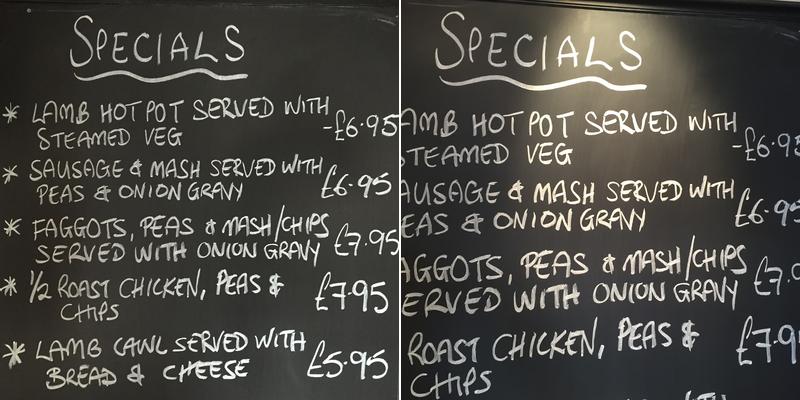 SPECIALS
* LAMB HOT POT SERVED WITH
STEAMED VEG -£6.95
* SAUSAGE & MASH SERVED WITH
PEAS & ONION GRAVY £6.95
* FAGGOTS, PEAS & MASH/CHIPS
SERVED WITH ONION GRAVY £7.95
* 1/2 ROAST CHICKEN, PEAS &
CHIPS £7.95
* LAMB CAWL SERVED WITH
BREAD & CHEESE £5.95
SPECIALS
AMB HOT POT SERVED WITH
STEAMED VEG -£6.9
AUSAGE & MASH SERVED WITH
EAS & ONION GRAVY £6.9
AGGOTS, PEAS & MASH/CHIPS
ERVED WITH ONION GRAVY £7.
ROAST CHICKEN, PEAS &
CHIPS £7.9